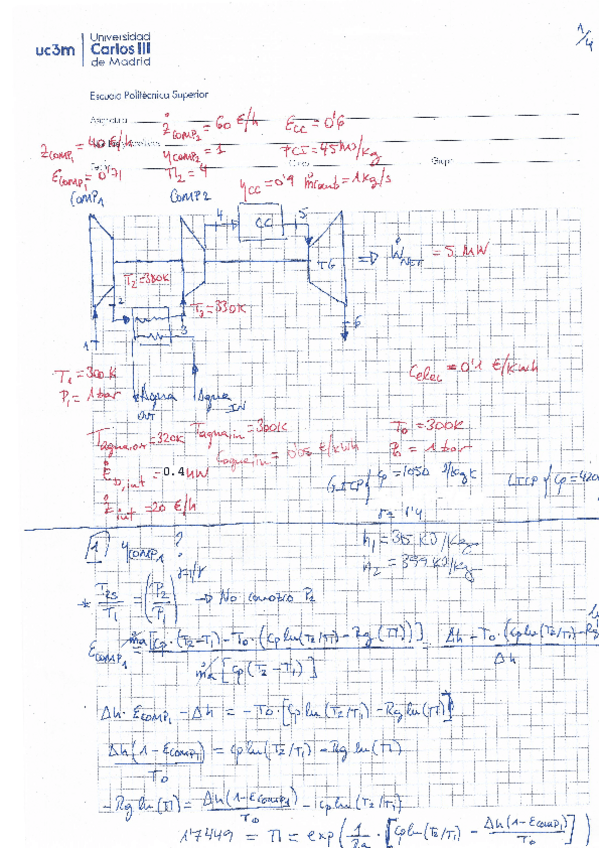 1/4
uc3m
Universidad
Carlos III
de Madrid
Escuela Politécnica Superior
Ż_COMP1 = 40 €/h
Ż_COMP2 = 60 €/h
ε_CC = 0'6
ε_COMP1 = 0'71
η_COMP2 = 1
PCI = 45 MJ/kg
Π_2 = 4
Grupo
COMP1
COMP2
η_CC = 0'9 ṁ_comb = 1 kg/s
4
CC
5
TG
⇒ Ẇ_NET = 5 MW
T_2 = 380K
T_3 = 330K
2
3
6
1
T_1 = 300K
P_1 = 1 bar
Agua OUT
Agua IN
C_elec = 0'1 €/kWh
T_agua,out = 320K T_agua,in = 300K
T_0 = 300K
P_0 = 1 bar
Ė_D,int = 0.4 MW
GICP { cp = 1050 J/kgK
LICP { cp = 420
Ż_int = 20 €/h
γ = 1'4
h_1 = 315 kJ/kg
h_2 = 399 kJ/kg
1 η_COMP1 ?
* T_2s/T_1 = (P_2/P_1)^γ-1/γ → No conozco P_2
ε_COMP1 = ṁa[cp·(T_2-T_1) - T_0·(cp ln(T_2/T_1) - Rg ln(Π))] / ṁa[cp(T_2-T_1)] = Δh - T_0·(cp ln(T_2/T_1) - Rg / Δh
Δh·ε_COMP1 - Δh = -T_0·[cp ln(T_2/T_1) - Rg ln(Π)]
Δh(1-ε_COMP1)/T_0 = cp ln(T_2/T_1) - Rg ln(Π)
-Rg ln(Π) = Δh(1-ε_COMP1)/T_0 - cp ln(T_2/T_1)
1'7449 = Π = exp(1/Rg · [cp ln(T_2/T_1) - Δh(1-ε_COMP1)/T_0])